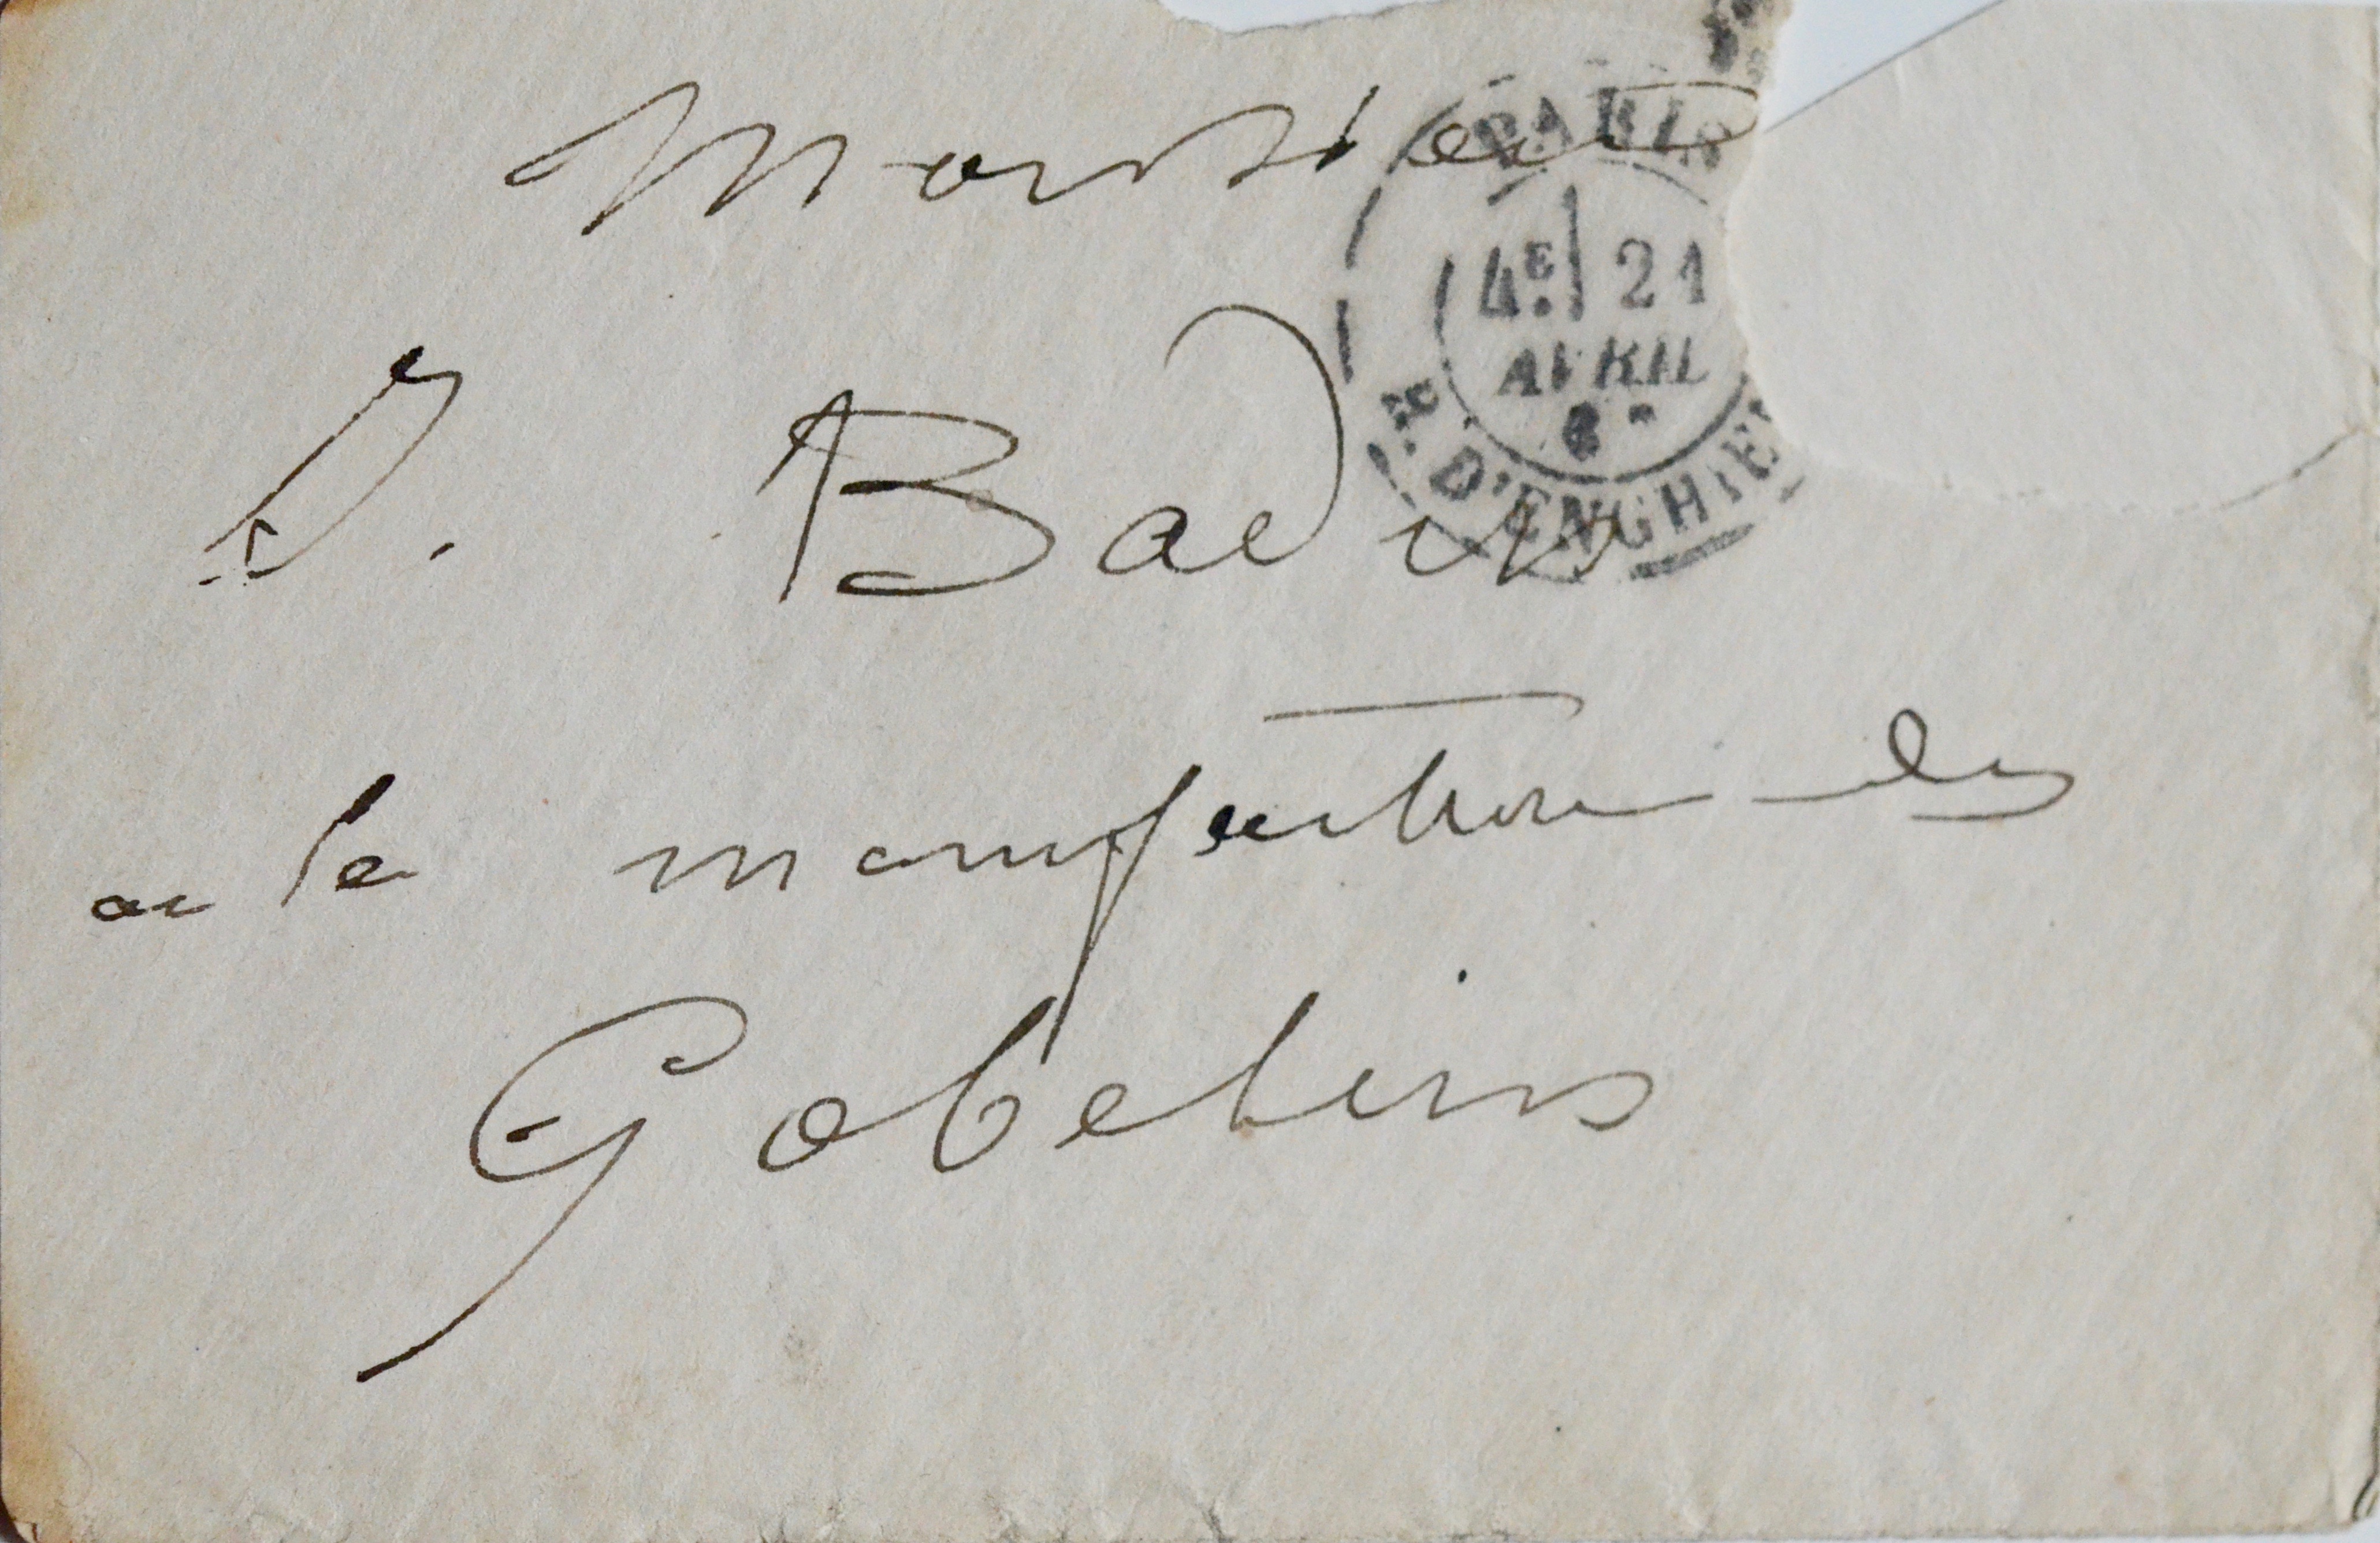 Monsieur
PARIS
4E. 21
AVRIL
J. Badin
R. D'ENGHIEN
a la manufacture des
Gobelins